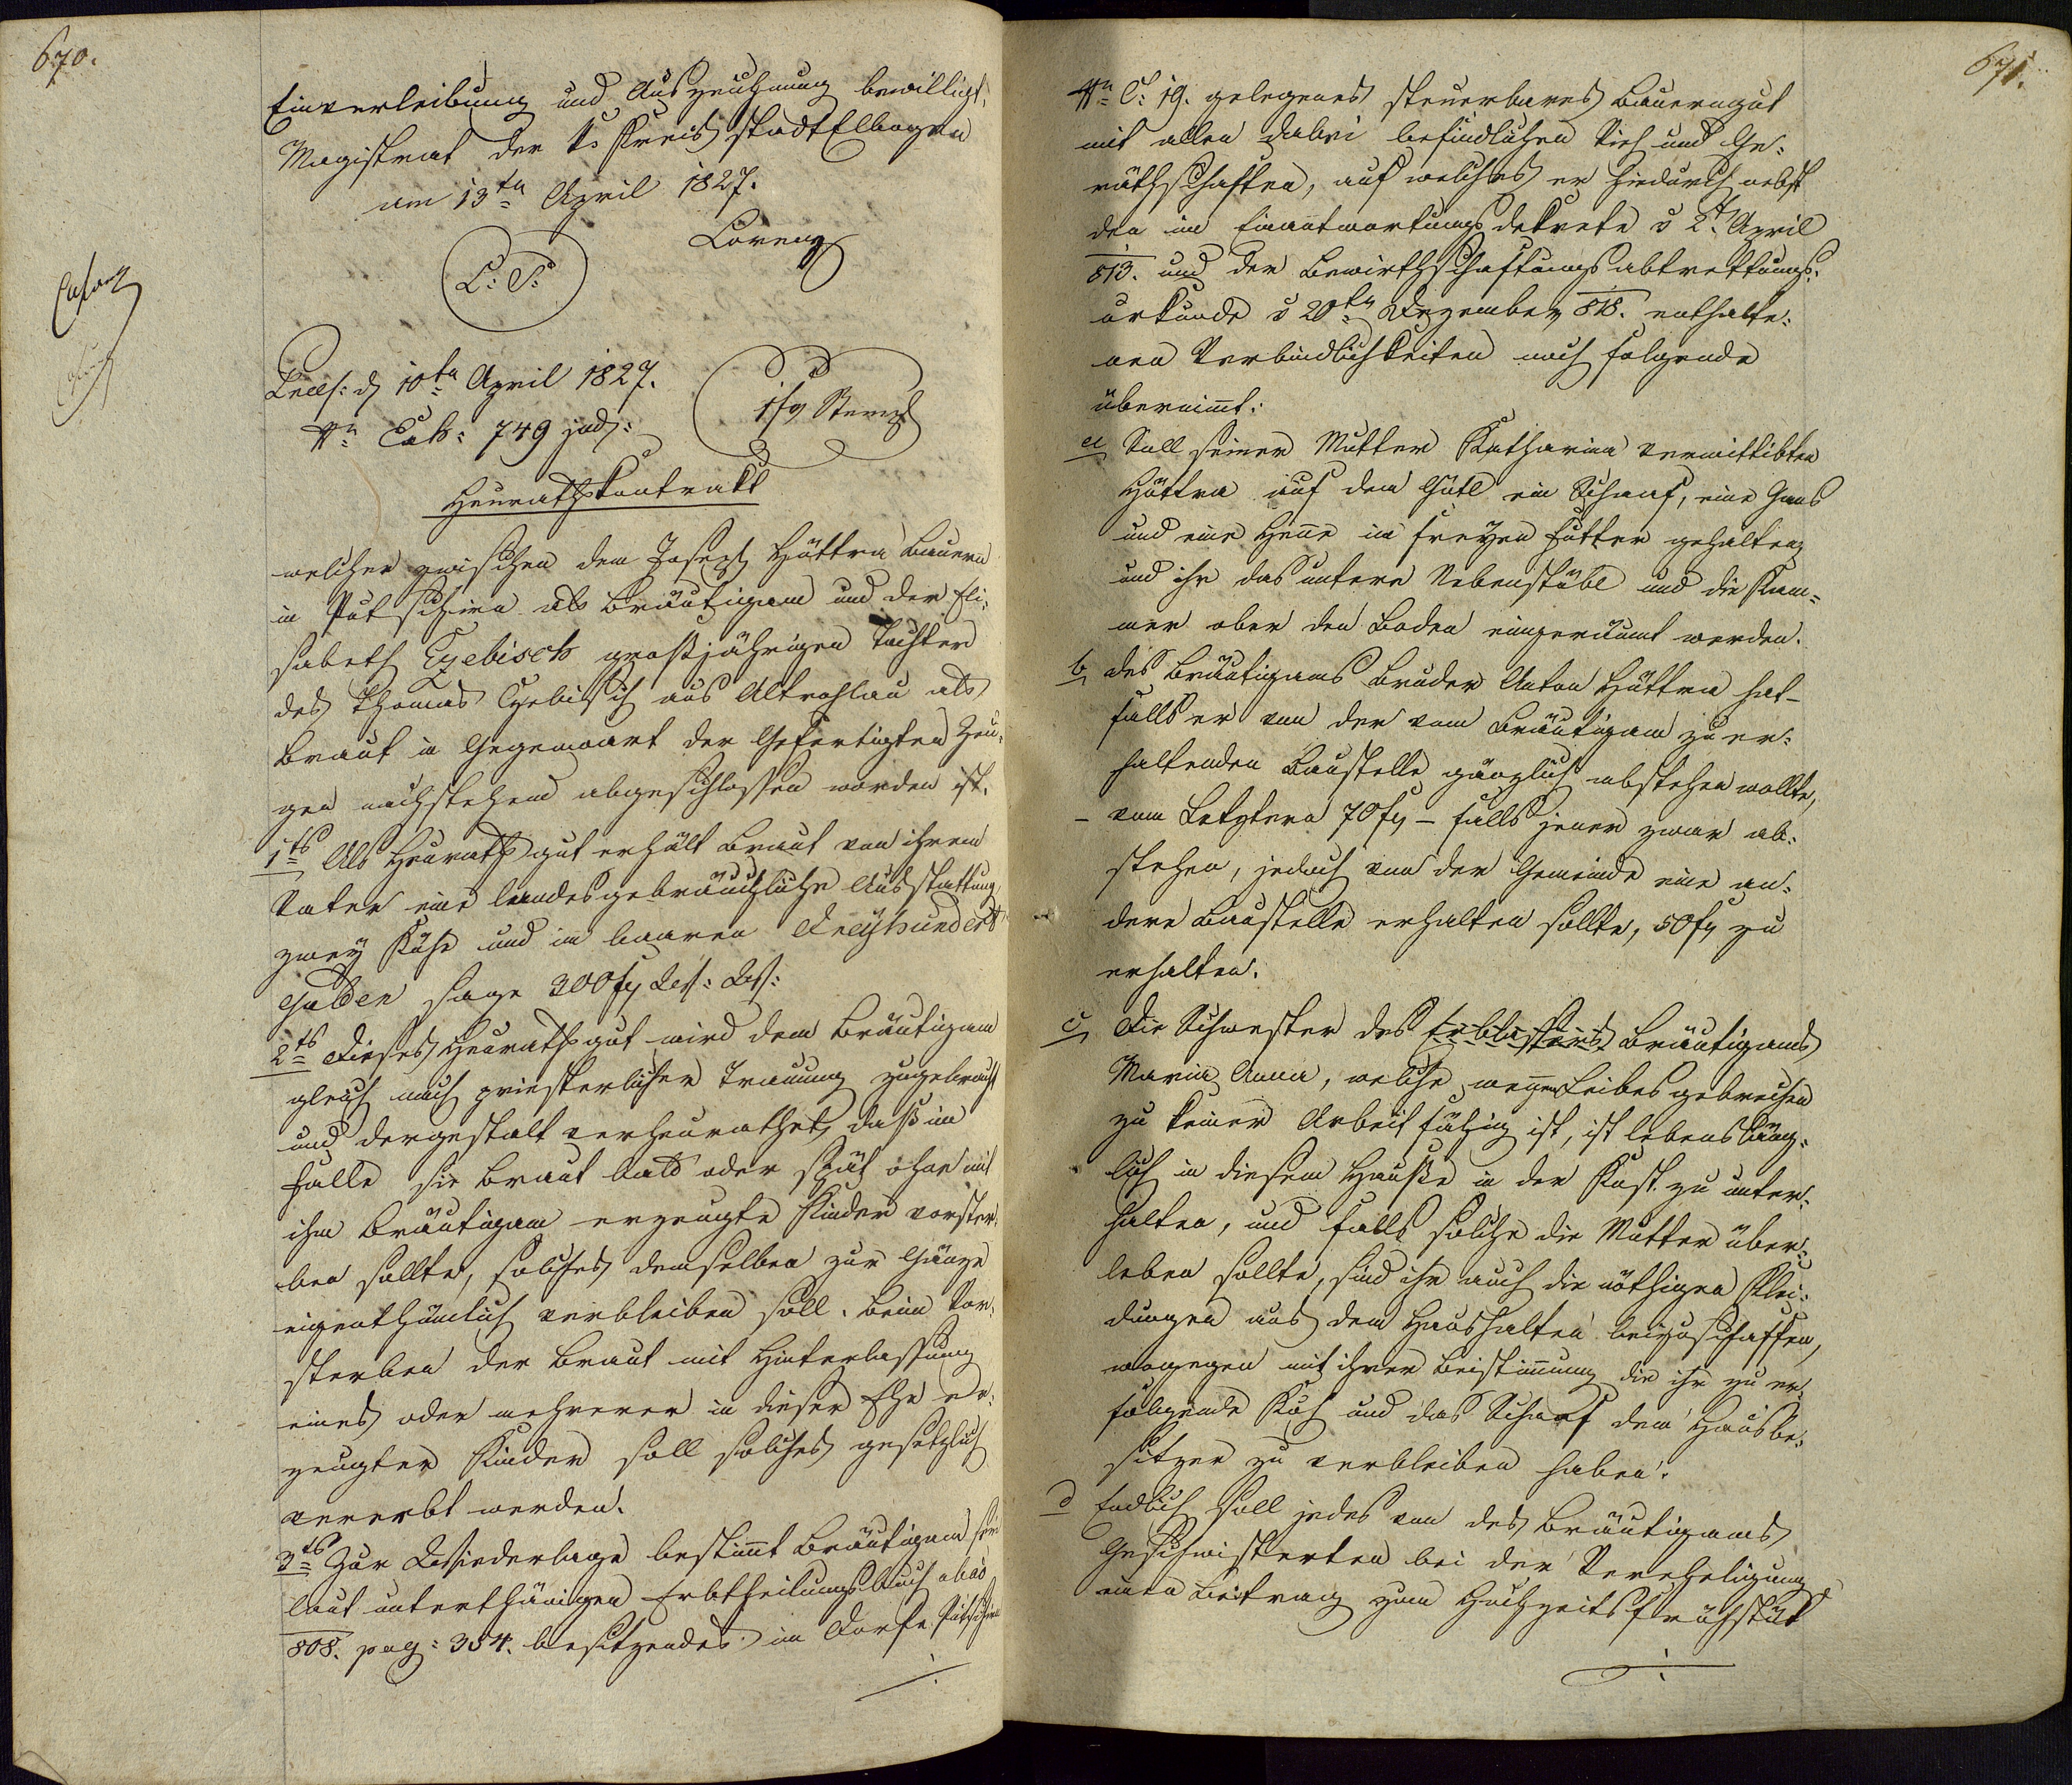 670.
Einverleibung und Auszeichnung bewilligt.
Magistrat der k. Kreisstadt Elbogen
am 13ten April 1827.
L: S:
Lorenz
Praes: d 10ten April 1827.
Nro Exh: 749 jud:
1 f Stempl
Heurathskontrakt
welcher zwischen dem Joseph Hüttra Bauern
in Putschirn als Bräutigam und der Eli-
sabeth Tzebisch großjährigen Tochter
des Thomas Tzebisch aus Altrohlau als
Braut in Gegenwart der Gefertigten Zeu-
gen nachstehend abgeschlossen worden ist.
1tens Als Heurathsgut erhält Braut von ihrem
Vater eine landesgebräuchliche Ausstattung,
zwey Kühe und im baaren Dreyhundert
Gulden sage 300 f
2tens Dieses Heurathsgut wird dem Bräutigam
gleich nach priesterlicher Trauung zugebracht
und dergestalt verheurathet, daß im
Falle die Braut bald oder spät ohne mit
ihm Bräutigam erzeugte Kinder vorster-
ben sollte, solches demselben zur Gänze
eigenthümlich verbleiben soll. Beim Vor-
sterben der Braut mit Hinterlassung
eines oder mehrerer in dieser Ehe er-
zeugter Kinder soll solches gesetzlich
vererbt werden.
3tens Zur Wiederlage bestimmt Bräutigam sein
laut unterthänigen Erbtheilungsbuch
808. pag: 354. besitzendes im Dorfe Putschirn
./.
671.
Nro C: 19. gelegenes steuerbares Bauerngut
mit allen dabei befindlichen Vieh und Ge-
räthschaften, auf welches er hiedurch nebst
den im Einantwortungsdekrete v 2t April
813. und der Bewirthschaftungsabtrettungs-
urkunde v 20ten Dezember 818. enthalte-
nen Verbindlichkeiten noch folgende
übernimt:
a, Soll seiner Mutter Katharina verwittibten
Hüttra auf dem Gütl ein Schaaf, eine Gans
und eine Henne in freyen Futter gehalten,
und ihr das untere Nebenstübl und die Kam-
mer ober den Boden eingeräumt werden.
b, des Bräutigams Bruder Anton Hüttra hat –
falls er von der vom Bräutigam zu er-
haltenden Baustelle gänzlich abstehen wollte,
– vom Letztern 70 f – falls jener zwar ab-
stehen, jedoch von der Gemeinde eine an-
dere Baustelle erhalten sollte, 50 f zu
erhalten.
c, Die Schwester des Erblassers Bräutigams
Maria Anna, welche wegen Leibesgebrechen
zu keiner Arbeit fähig ist, ist lebensläng-
lich in diesem Hauße in der Kost zu unter-
halten, und falls solche die Mutter über-
leben sollte, sind ihr auch die nöthigen Klei-
dungen aus dem Haushalten beizuschaffen,
wogegen mit ihrer Beistimmung die ihr zu er-
folgende Kuh und das Schaaf dem Hausbe-
sitzer zu verbleiben haben.
d, Endlich soll jedes von des Bräutigams
Geschwisterten bei der Verehelichung
einen Beitrag zum Hochzeitsfrühstük
./.